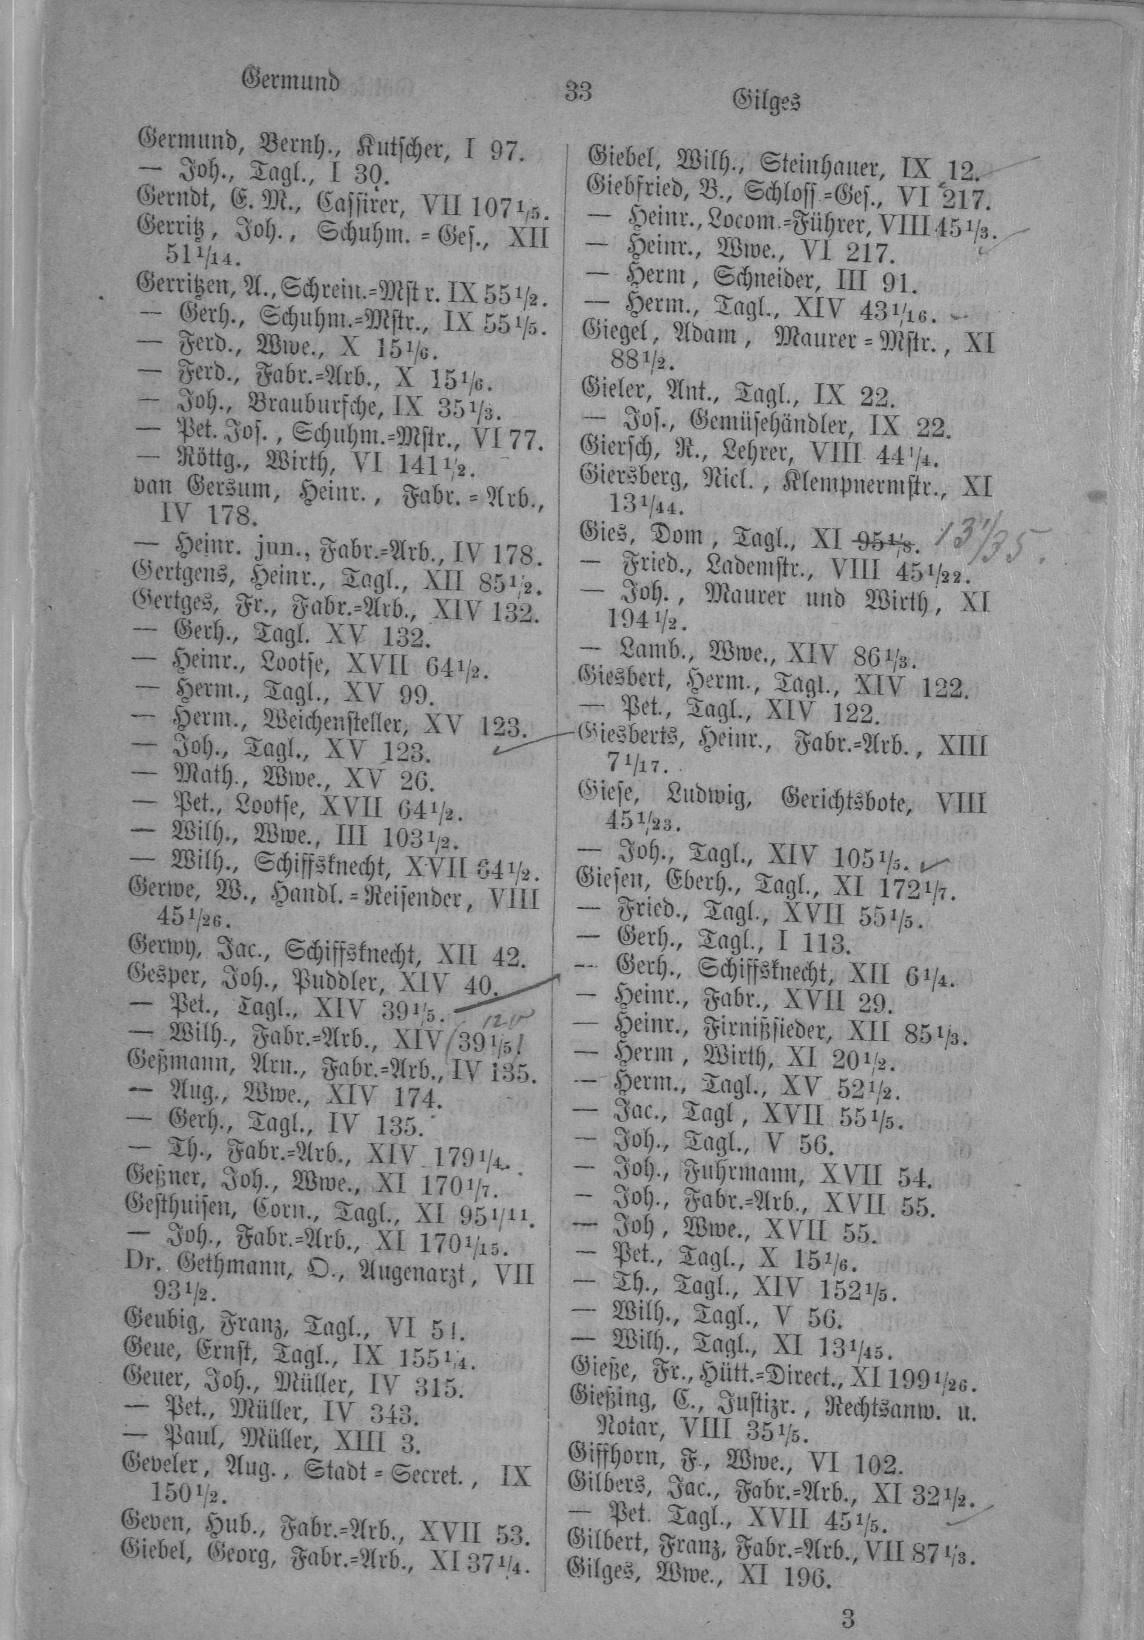 Germund
33
Gilges
Germund, Bernh., Kutscher, I 97.
— Joh., Tagl., I 30.
Gerndt, E. M., Cassirer, VII 107 1/5.
Gerritz, Joh., Schuhm.=Ges., XII
51 1/14.
Gerritzen, A., Schrein.=Mstr. IX 55 1/2.
— Gerh., Schuhm.=Mstr., IX 55 1/5.
— Ferd., Wwe., X 15 1/6.
— Ferd., Fabr.=Arb., X 15 1/6.
— Joh., Braubursche, IX 35 1/3.
— Pet. Jos., Schuhm.=Mstr., VI 77.
— Röttg., Wirth, VI 141 1/2.
van Gersum, Heinr., Fabr.=Arb.,
IV 178.
— Heinr. jun., Fabr.=Arb., IV 178.
Gertgens, Heinr., Tagl., XII 85 1/2.
Gertges, Fr., Fabr.=Arb., XIV 132.
— Gerh., Tagl. XV 132.
— Heinr., Lootse, XVII 64 1/2.
— Herm., Tagl., XV 99.
— Herm., Weichensteller, XV 123.
— Joh., Tagl., XV 123.
— Math., Wwe., XV 26.
— Pet., Lootse, XVII 64 1/2.
— Wilh., Wwe., III 103 1/2.
— Wilh., Schiffsknecht, XVII 64 1/2.
Gerwe, W., Handl.=Reisender, VIII
45 1/26.
Gerwy, Jac., Schiffsknecht, XII 42.
Gesper, Joh., Puddler, XIV 40.
— Pet., Tagl., XIV 39 1/5.
— Wilh., Fabr.=Arb., XIV 39 1/5.
Geßmann, Arn., Fabr.=Arb., IV 135.
— Aug., Wwe., XIV 174.
— Gerh., Tagl., IV 135.
— Th., Fabr.=Arb., XIV 179 1/4.
Geßner, Joh., Wwe., XI 170 1/7.
Gesthuisen, Corn., Tagl., XI 95 1/11.
— Joh., Fabr.=Arb., XI 170 1/15.
Dr. Gethmann, O., Augenarzt, VII
93 1/2.
Geubig, Franz, Tagl., VI 51.
Geue, Ernst, Tagl., IX 155 1/4.
Geuer, Joh., Müller, IV 315.
— Pet., Müller, IV 343.
— Paul, Müller, XIII 3.
Geveler, Aug., Stadt=Secret., IX
150 1/2.
Geven, Hub., Fabr.=Arb., XVII 53.
Giebel, Georg, Fabr.=Arb., XI 37 1/4.
Giebel, Wilh., Steinhauer, IX 12.
Giebfried, B., Schloss.=Ges., VI 217.
— Heinr., Locom.=Führer, VIII 45 1/3.
— Heinr., Wwe., VI 217.
— Herm, Schneider, III 91.
— Herm., Tagl., XIV 43 1/16.
Giegel, Adam, Maurer=Mstr., XI
88 1/2.
Gieler, Ant., Tagl., IX 22.
— Jos., Gemüsehändler, IX 22.
Giersch, R., Lehrer, VIII 44 1/4.
Giersberg, Nicl., Klempnermstr., XI
13 1/44.
Gies, Dom, Tagl., XI 95 1/8. 13 1/35.
— Fried., Lademstr., VIII 45 1/22.
— Joh., Maurer und Wirth, XI
194 1/2.
— Lamb., Wwe., XIV 86 1/3.
Giesbert, Herm., Tagl., XIV 122.
— Pet., Tagl., XIV 122.
Giesberts, Heinr., Fabr.=Arb., XIII
7 1/17.
Giese, Ludwig, Gerichtsbote, VIII
45 1/23.
— Joh., Tagl., XIV 105 1/5.
Giesen, Eberh., Tagl., XI 172 1/7.
— Fried., Tagl., XVII 55 1/5.
— Gerh., Tagl., I 113.
— Gerh., Schiffsknecht, XII 6 1/4.
— Heinr., Fabr., XVII 29.
— Heinr., Firnißsieder, XII 85 1/3.
— Herm, Wirth, XI 20 1/2.
— Herm., Tagl., XV 52 1/2.
— Jac., Tagl, XVII 55 1/5.
— Joh., Tagl., V 56.
— Joh., Fuhrmann, XVII 54.
— Joh., Fabr.=Arb., XVII 55.
— Joh, Wwe., XVII 55.
— Pet., Tagl., X 15 1/6.
— Th., Tagl., XIV 152 1/5.
— Wilh., Tagl., V 56.
— Wilh., Tagl., XI 13 1/45.
Gieße, Fr., Hütt.=Direct., XI 199 1/26.
Gießing, C., Justizr., Rechtsanw. u.
Notar, VIII 35 1/5.
Giffhorn, F., Wwe., VI 102.
Gilbers, Jac., Fabr.=Arb., XI 32 1/2.
— Pet. Tagl., XVII 45 1/5.
Gilbert, Franz, Fabr.=Arb., VII 87 1/3.
Gilges, Wwe., XI 196.
3